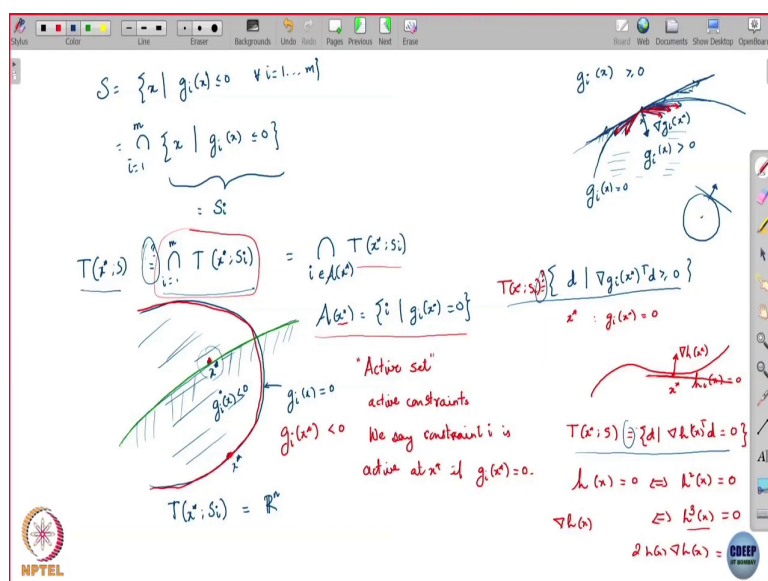 Stylus
Color
Line
Eraser
Backgrounds
Undo
Redo
Pages
Previous
Next
Erase
Board
Web
Documents
Show Desktop
OpenBoard
S = {x | g_i(x) ≤ 0 ∀ i=1...m}
= ∩_{i=1}^m {x | g_i(x) ≤ 0}
= S_i
T(x*;S) = ∩_{i=1}^m T(x*;S_i) = ∩_{i∈A(x*)} T(x*;S_i)
A(x*) = {i | g_i(x*) = 0}
x*
g_i(x) ≤ 0
g_i(x) = 0
g_i(x*) < 0
x*
T(x*;S_i) = ℝ^n
"Active set"
active constraints
We say constraint i is
active at x* if g_i(x*) = 0.
g_i(x) ≥ 0
∇g_i(x*)
g_i(x) > 0
g_i(x) = 0
T(x*;S_i) = {d | ∇g_i(x*)^T d ≥ 0}
x* : g_i(x*) = 0
∇h(x*)
x*
h_i(x) = 0
T(x*;S) = {d | ∇h(x*)^T d = 0}
h(x) = 0 ⇔ h²(x) = 0
∇h(x) ⇔ h³(x) = 0
2h(x)∇h(x) =
NPTEL
CDEEP
IIT BOMBAY